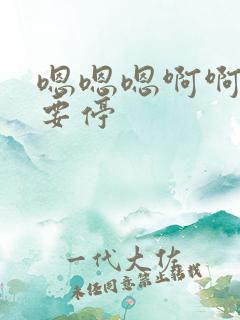 嗯嗯嗯啊啊
要停
一代大佐
未经同意禁止转载